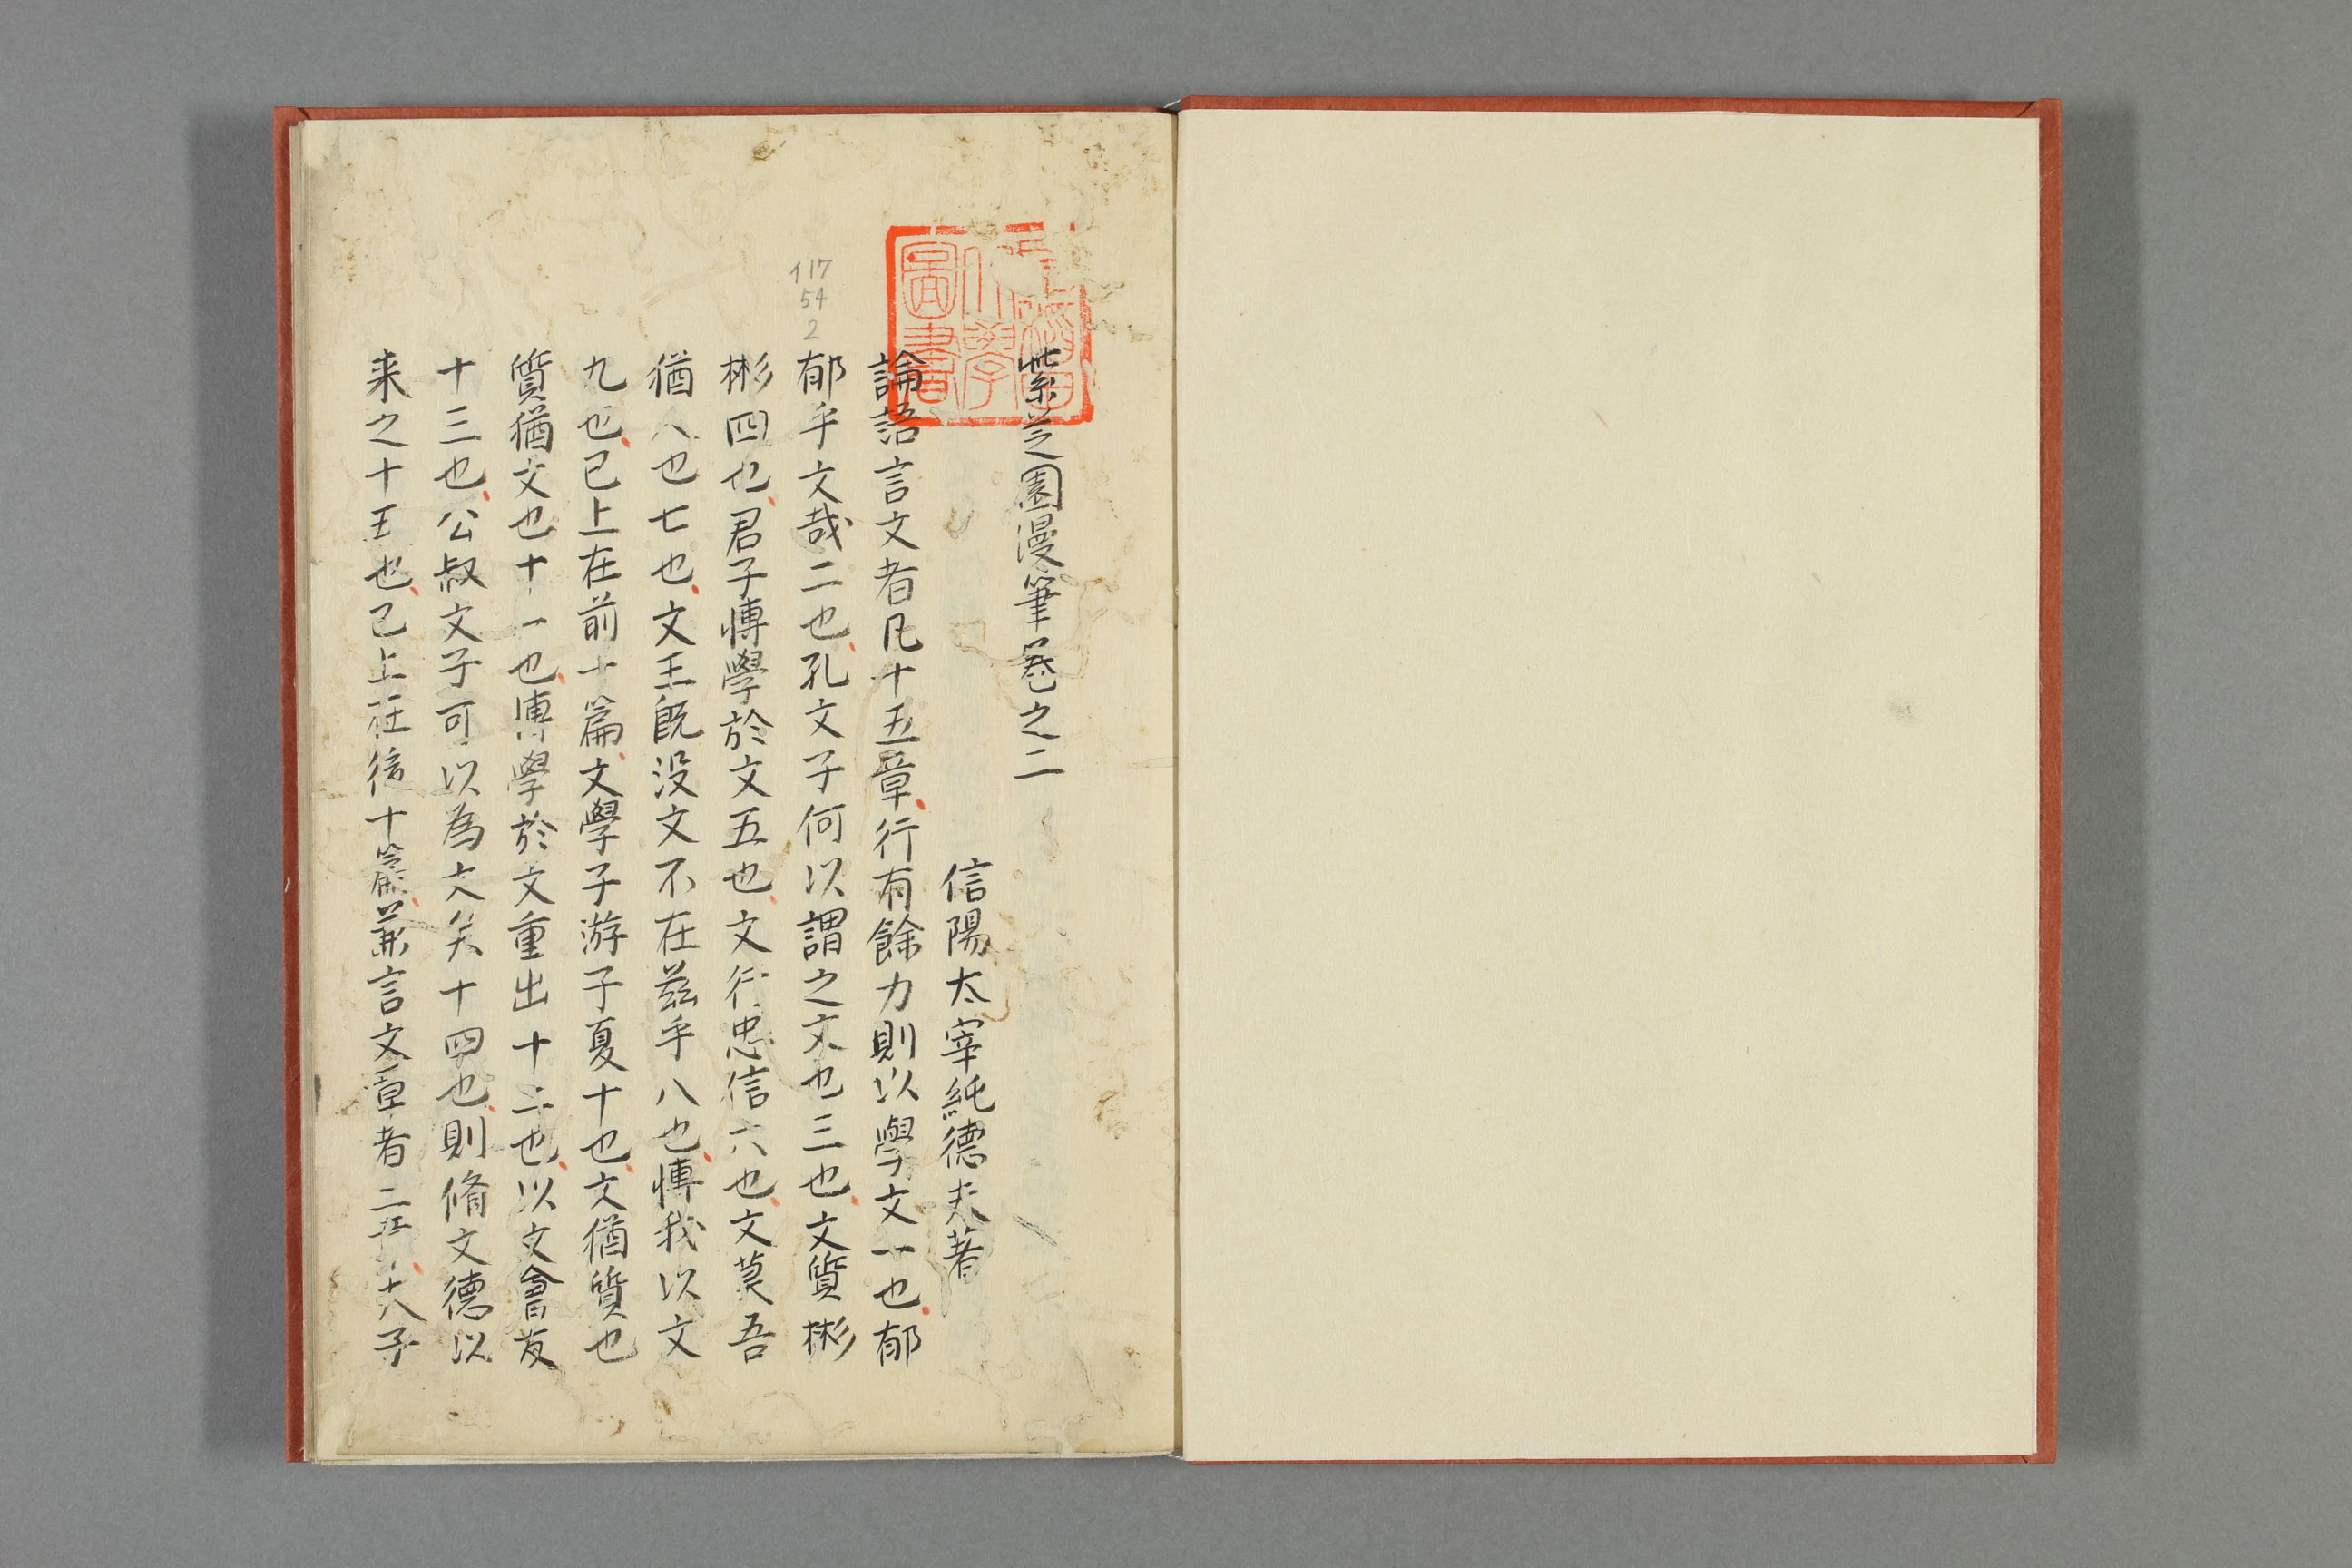 紫芝園漫筆卷之二
信陽太宰純德夫著
論語言文者凡十五章行有餘力則以學文一也郁
郁乎文哉二也孔文子何以謂之文也三也文質彬
彬四也君子博學於文五也文行忠信六也文莫吾
猶人也七也文王既没文不在茲乎八也博我以文
九也已上在前十篇文學子游子夏十也文猶質也
質猶文也十一也博學於文重出十二也以文會友
十三也公叔文子可以為文矣十四也則脩文德以
来之十五也已上在後十篇兼言文章者二章十八子
イ17
54
2
圖書